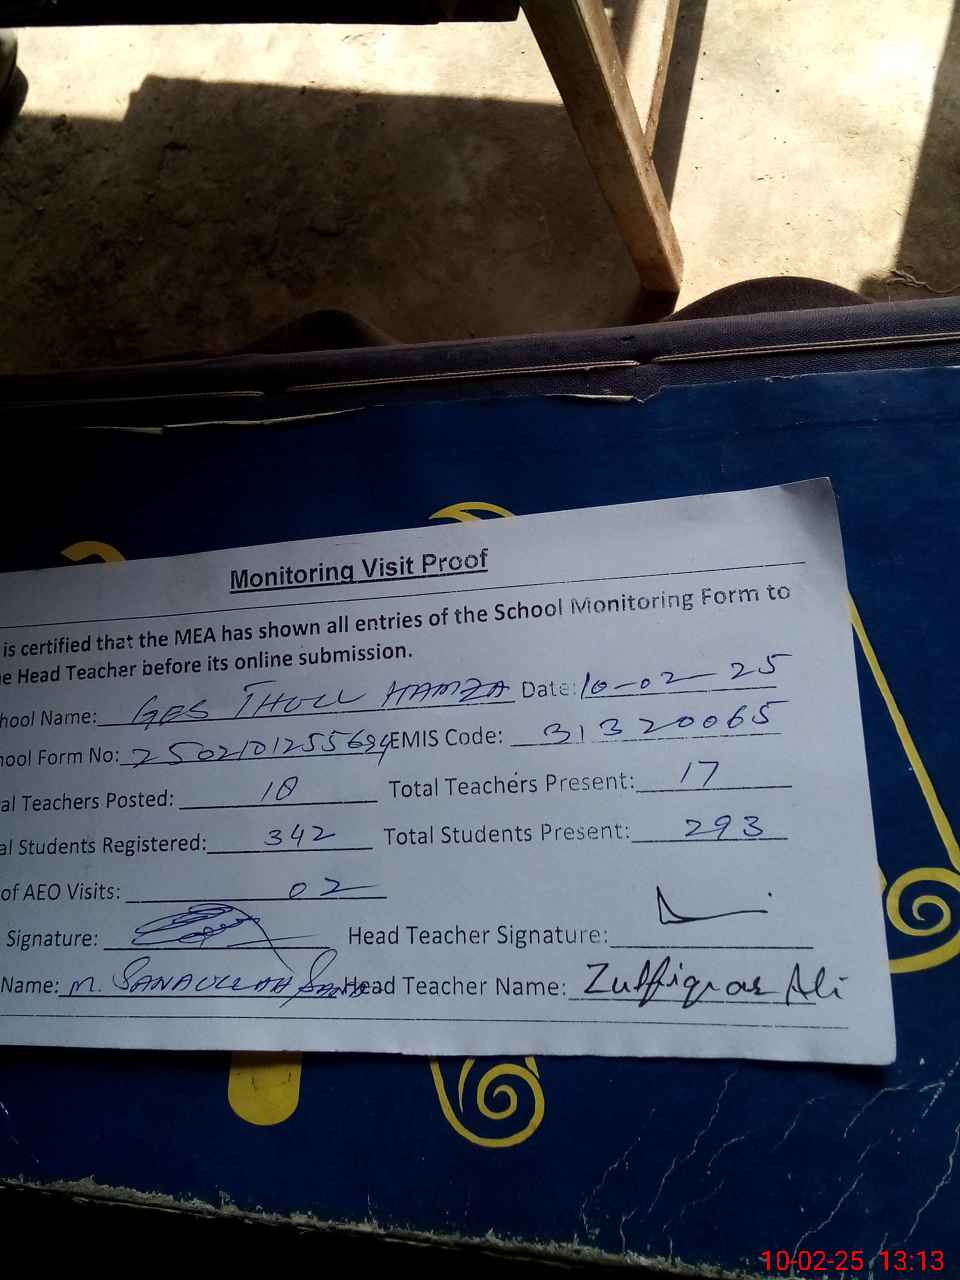 Monitoring Visit Proof
is certified that the MEA has shown all entries of the School Monitoring Form to
e Head Teacher before its online submission.
hool Name: GES THULL HAMZA Date: 10-02-25
hool Form No: EMIS Code: 31320065
al Teachers Posted: 18 Total Teachers Present: 17
al Students Registered: 342 Total Students Present: 293
of AEO Visits: 02
Signature: Head Teacher Signature:
Name: M. SANAULLAH Head Teacher Name: Zulfiqar Ali
10-02-25 13:13